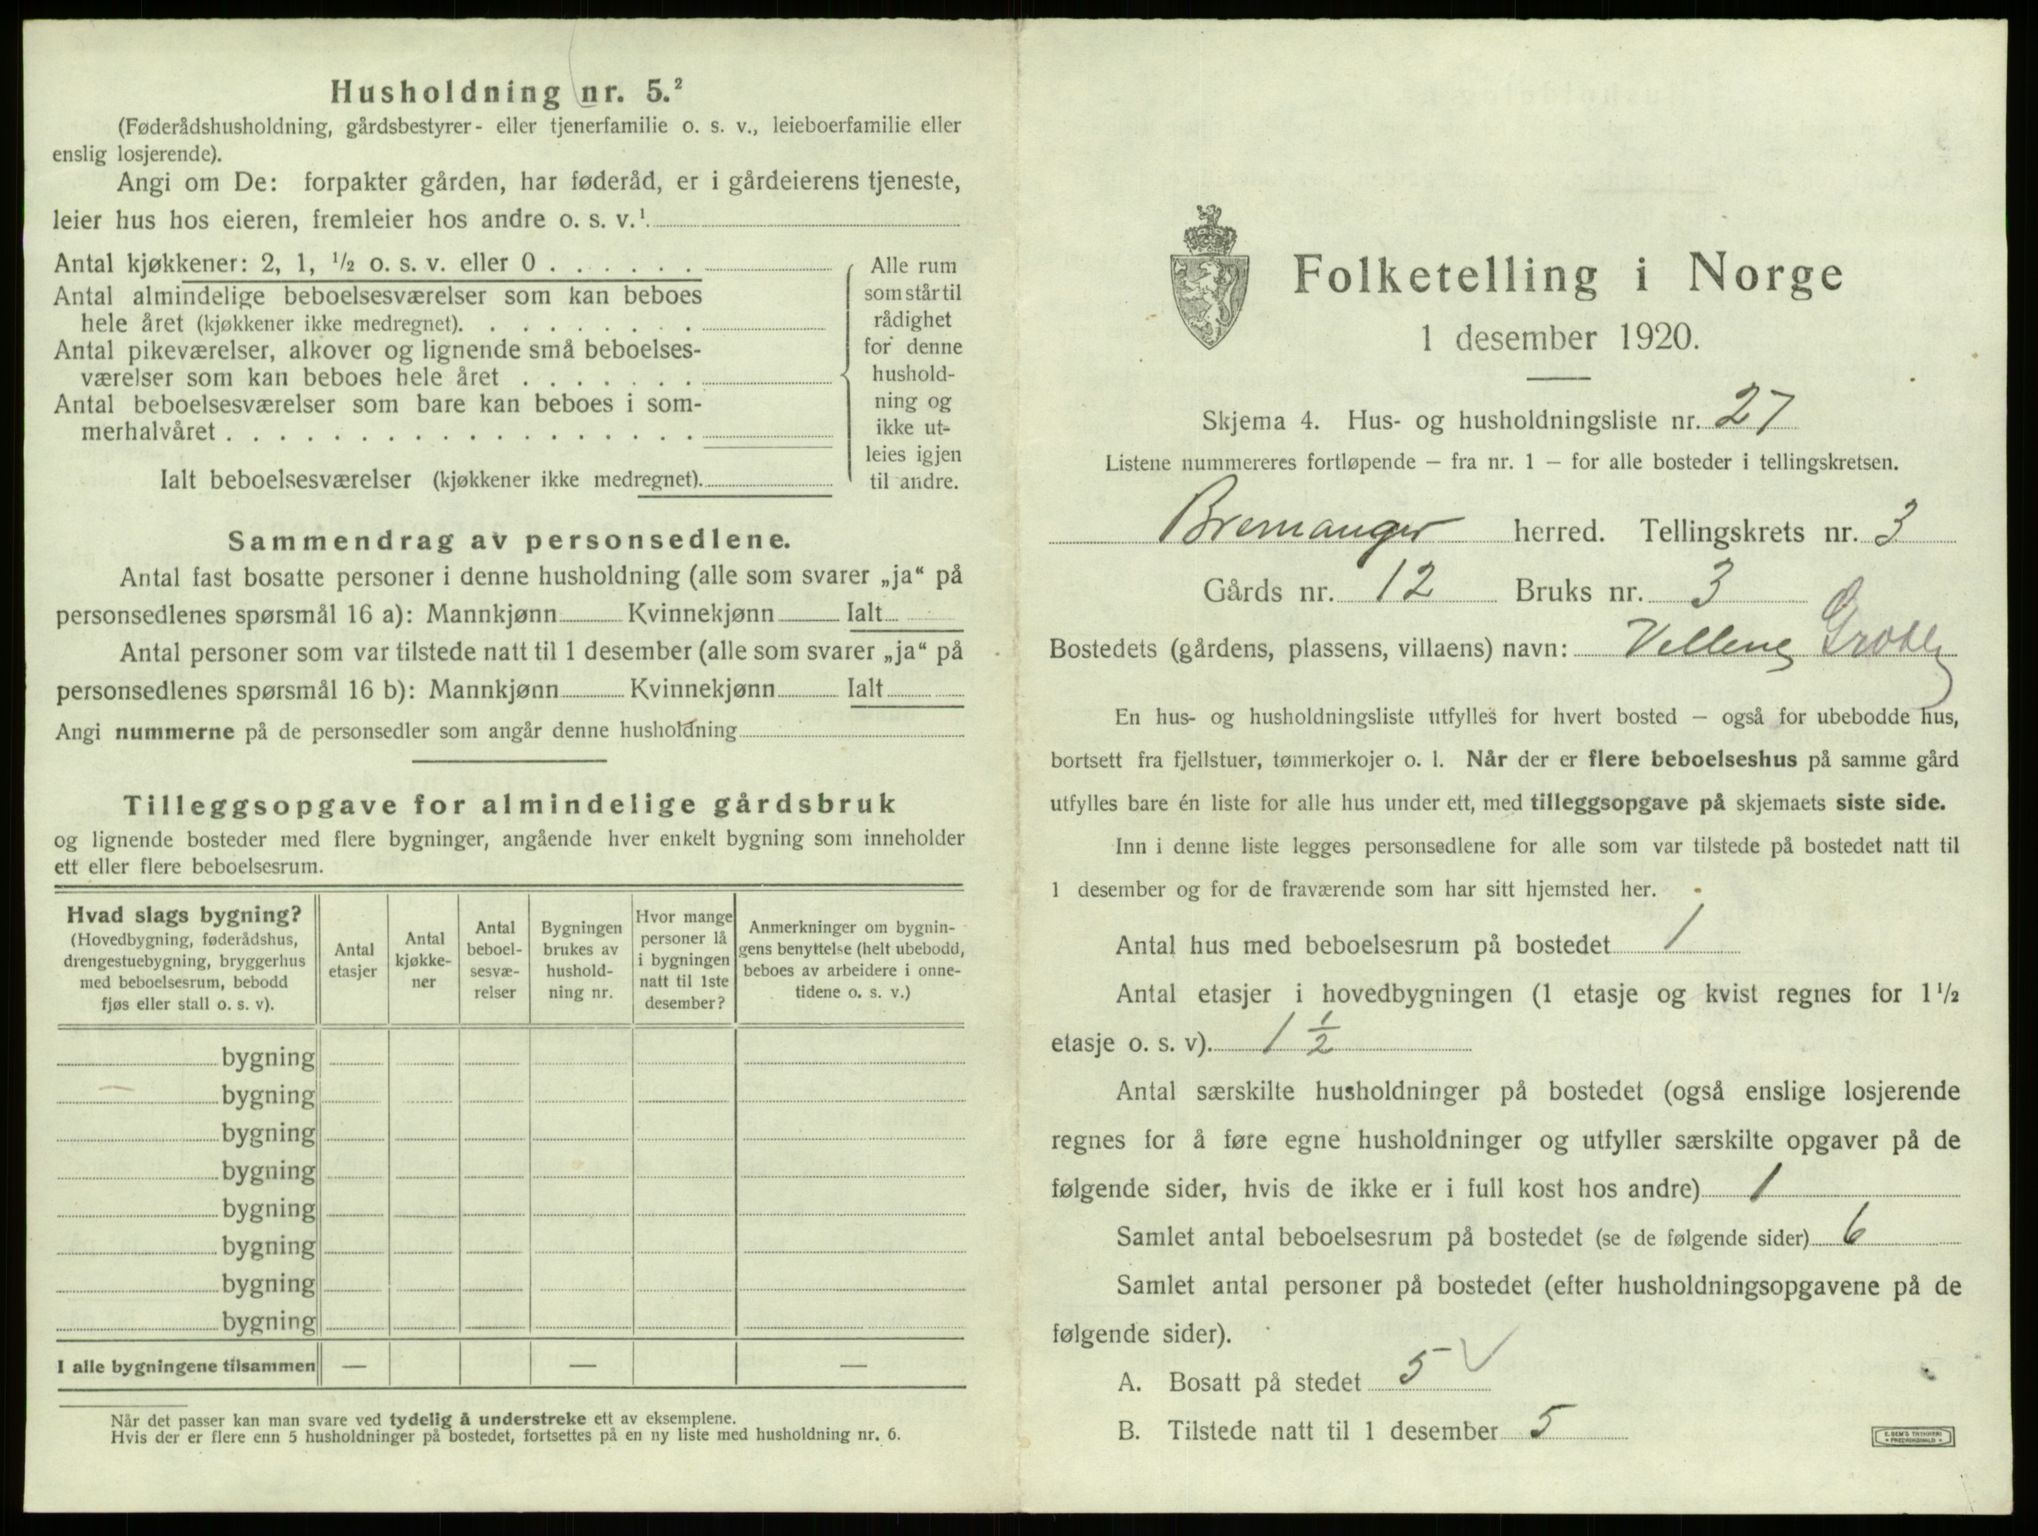 Husholdning nr. 5.²
(Føderådshusholdning, gårdsbestyrer- eller tjenerfamilie o. s. v., leieboerfamilie eller
enslig losjerende).
Angi om De: forpakter gården, har føderåd, er i gårdeierens tjeneste,
leier hus hos eieren, fremleier hos andre o. s. v.¹
Antal kjøkkener: 2, 1, ½ o. s. v. eller 0 . . . . . .
Antal almindelige beboelsesværelser som kan beboes
hele året (kjøkkener ikke medregnet). . . . . . . . .
Antal pikeværelser, alkover og lignende små beboelses-
værelser som kan beboes hele året . . . . . . .
Antal beboelsesværelser som bare kan beboes i som-
merhalvåret . . . . . . . . . . . . . . . . . .
Ialt beboelsesværelser (kjøkkener ikke medregnet).
Alle rum
som står til
rådighet
for denne
hushold-
ning og
ikke ut-
leies igjen
til andre.
Sammendrag av personsedlene.
Antal fast bosatte personer i denne husholdning (alle som svarer „ja“ på
personsedlenes spørsmål 16 a): Mannkjønn Kvinnekjønn Ialt
Antal personer som var tilstede natt til 1 desember (alle som svarer „ja“ på
personsedlenes spørsmål 16 b): Mannkjønn Kvinnekjønn Ialt
Angi nummerne på de personsedler som angår denne husholdning
Tilleggsopgave for almindelige gårdsbruk
og lignende bosteder med flere bygninger, angående hver enkelt bygning som inneholder
ett eller flere beboelsesrum.
Hvad slags bygning?
(Hovedbygning, føderådshus,
drengestuebygning, bryggerhus
med beboelsesrum, bebodd
fjøs eller stall o. s. v).
Antal
etasjer
Antal
kjøkke-
ner
Antal
beboel-
sesvæ-
relser
Bygningen
brukes av
hushold-
ning nr.
Hvor mange
personer lå
i bygningen
natt til 1ste
desember?
Anmerkninger om bygnin-
gens benyttelse (helt ubebodd,
beboes av arbeidere i onne-
tidene o. s. v.)
bygning
bygning
bygning
bygning
bygning
bygning
bygning
bygning
I alle bygningene tilsammen — — —
Når det passer kan man svare ved tydelig å understreke ett av eksemplene.
Hvis der er flere enn 5 husholdninger på bostedet, fortsettes på en ny liste med husholdning nr. 6.
Folketelling i Norge
1 desember 1920.
Skjema 4. Hus- og husholdningsliste nr. 27
Listene nummereres fortløpende – fra nr. 1 – for alle bosteder i tellingskretsen.
Bremanger herred. Tellingskrets nr. 3
Gårds nr. 12 Bruks nr. 3
Bostedets (gårdens, plassens, villaens) navn:
En hus- og husholdningsliste utfylles for hvert bosted – også for ubebodde hus,
bortsett fra fjellstuer, tømmerkojer o. l. Når der er flere beboelseshus på samme gård
utfylles bare én liste for alle hus under ett, med tilleggsopgave på skjemaets siste side.
Inn i denne liste legges personsedlene for alle som var tilstede på bostedet natt til
1 desember og for de fraværende som har sitt hjemsted her.
Antal hus med beboelsesrum på bostedet 1
Antal etasjer i hovedbygningen (1 etasje og kvist regnes for 1½
etasje o. s. v). 1½
Antal særskilte husholdninger på bostedet (også enslige losjerende
regnes for å føre egne husholdninger og utfyller særskilte opgaver på de
følgende sider, hvis de ikke er i full kost hos andre) 1
Samlet antal beboelsesrum på bostedet (se de følgende sider) 6
Samlet antal personer på bostedet (efter husholdningsopgavene på de
følgende sider).
A. Bosatt på stedet 5 ✓
B. Tilstede natt til 1 desember 5